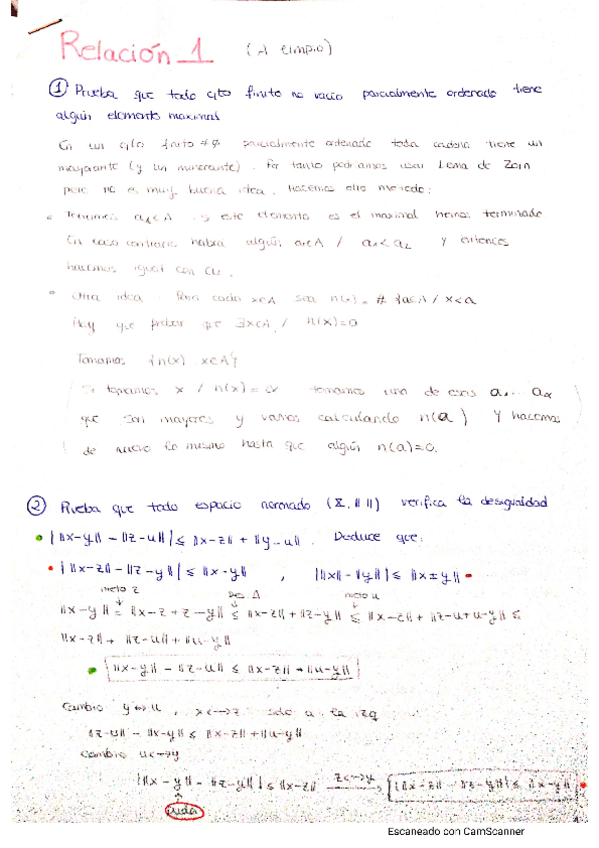 Relación 1 (A limpio)
① Prueba que todo cjto finito no vacío parcialmente ordenado tiene
algún elemento maximal
En un cjto finito ≠ ∅ parcialmente ordenado toda cadena tiene un
mayorante (y un minorante). Por tanto podríamos usar Lema de Zorn
pero no es muy buena idea. Hacemos otro método:
Tomamos a₁∈A, si este elemento es el maximal hemos terminado
En caso contrario habrá algún a₂∈A / a₁<a₂ y entonces
hacemos igual con a₂.
Otra idea: Para cada x∈A sea n(x) = # {a∈A / x<a
Hay que probar que ∃x∈A / n(x)=0
Tomamos {n(x) x∈A}
Si tomamos x / n(x)=α tomamos uno de esos a₁... aα
que son mayores y vamos calculando n(a) Y hacemos
de nuevo lo mismo hasta que algún n(a)=0.
② Prueba que todo espacio normado (X, ‖ ‖) verifica la desigualdad
| ‖x-y‖ - ‖z-u‖ | ≤ ‖x-z‖ + ‖y-u‖. Deduce que:
| ‖x-z‖ - ‖z-y‖ | ≤ ‖x-y‖ , |‖x‖-‖y‖| ≤ ‖x±y‖
meto z Des. Δ meto u
‖x-y‖ = ‖x-z+z-y‖ ≤ ‖x-z‖+‖z-y‖ ≤ ‖x-z‖+‖z-u+u-y‖ ≤
‖x-z‖ + ‖z-u‖ + ‖u-y‖
‖x-y‖ - ‖z-u‖ ≤ ‖x-z‖ + ‖u-y‖
Cambio y↔u , x↔z solo a la izq
‖z-u‖ - ‖x-y‖ ≤ ‖x-z‖ + ‖u-y‖
Cambio u↔y
|‖x-y‖ - ‖z-y‖| ≤ ‖x-z‖ z↔y |‖x-z‖ - ‖z-y‖| ≤ ‖x-y‖
duda
Escaneado con CamScanner